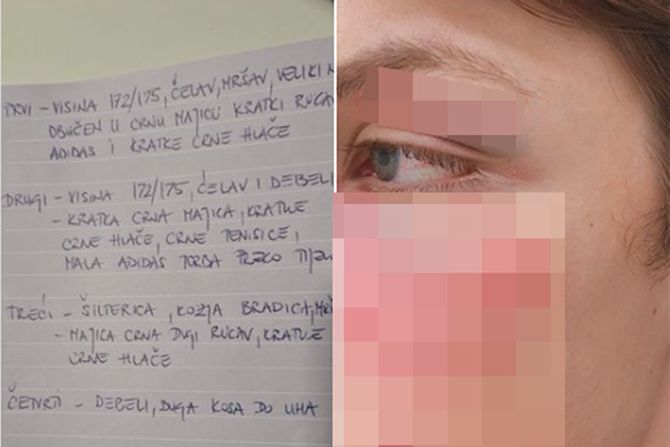 PRVI - VISINA 172/175, ĆELAV, MRŠAV, VELIKI
OBUČEN U CRNU MAJICU KRATKI RUKAV
ADIDAS I KRATKE CRNE HLAČE
DRUGI - VISINA 172/175, ĆELAV I DEBELI
- KRATKA CRNA MAJICA, KRATKE
CRNE HLAČE, CRNE TENISICE,
MALA ADIDAS TORBA PREKO
TREĆI - ŠILTERICA, KOZJA BRADICA,
- MAJICA CRNA DUGI RUKAV, KRATKE
CRNE HLAČE
ČETVRTI - DEBELI, DUGA KOSA DO UHA